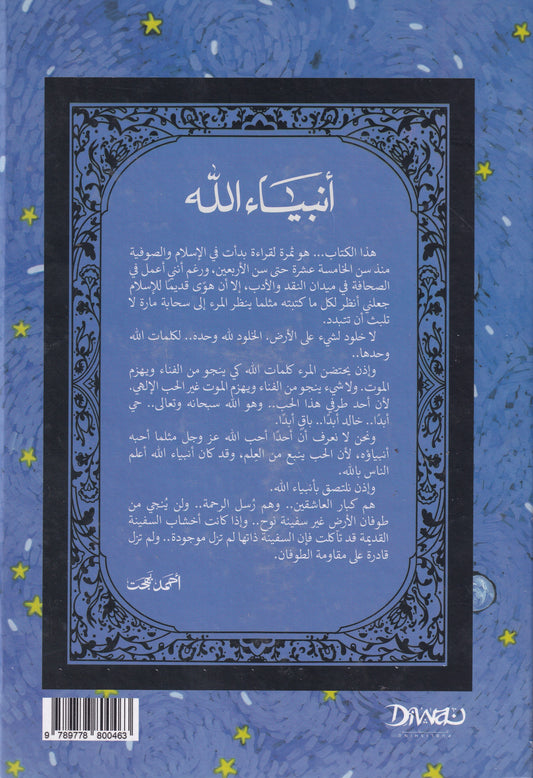 أنبياء الله
هذا الكتاب... هو ثمرة لقراءة بدأت في الإسلام والصوفية
منذ سن الخامسة عشرة حتى سن الأربعين، ورغم أنني أعمل في
الصحافة في ميدان النقد والأدب، إلا أن هوًى قديمًا للإسلام
جعلني أنظر لكل ما كتبته مثلما ينظر المرء إلى سحابة مارة لا
تلبث أن تتبدد.
لا خلود لشيء على الأرض. الخلود لله وحده.. لكلمات الله
وحدها..
وإذن يحتضن المرء كلمات الله كي ينجو من الفناء ويهزم
الموت. ولاشيء ينجو من الفناء ويهزم الموت غير الحب الإلهي.
لأن أحد طرفي هذا الحب.. وهو الله سبحانه وتعالى.. حي
أبدًا.. خالد أبدًا.. باقٍ أبدًا.
ونحن لا نعرف أن أحدًا أحب الله عز وجل مثلما أحبه
أنبياؤه، لأن الحب ينبع من العِلم، وقد كان أنبياء الله أعلم
الناس بالله.
وإذن نلتصق بأنبياء الله.
هم كبار العاشقين.. وهم رُسل الرحمة.. ولن يُنجي من
طوفان الأرض غير سفينة نوح.. وإذا كانت أخشاب السفينة
القديمة قد تآكلت فإن السفينة ذاتها لم تزل موجودة.. ولم تزل
قادرة على مقاومة الطوفان.
أحمد بهجت
9 789778 800463
DIWAN
PUBLISHING